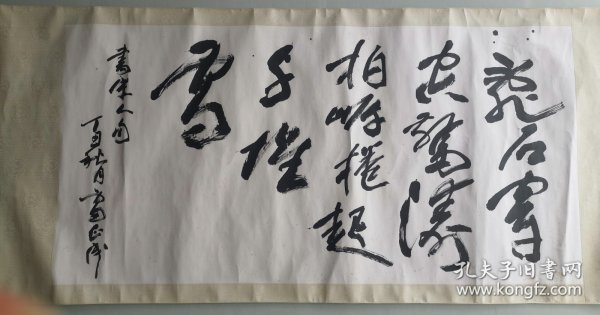 亂石穿
空驚濤
拍岸捲起
千堆
雪
書宋人句
丁丑秋月
孔夫子旧书网
www.kongfz.com